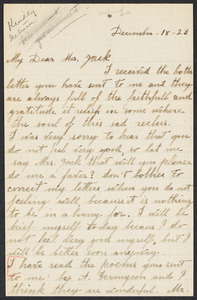 December - 18 - 23
My Dear Mrs. Jack
I received the both
letter you have sent to me and they
are always full of the faithfull and
gratitude it relish in some writes.
the soul of the red
I was very sorry to hear that you
do not feel very work, so let me
say Mrs. Jack that will you please
do me a favor? don't bother to
correct my letters when you do not
feeling well, because it is nothing
to be in a hurry for. I will be
brief myself to day because I do
not feel very good myself, but I
will be better won anyway.
I have read the poems you sent
to me by A. Tennyson and I
think they are wonderful. Mr.